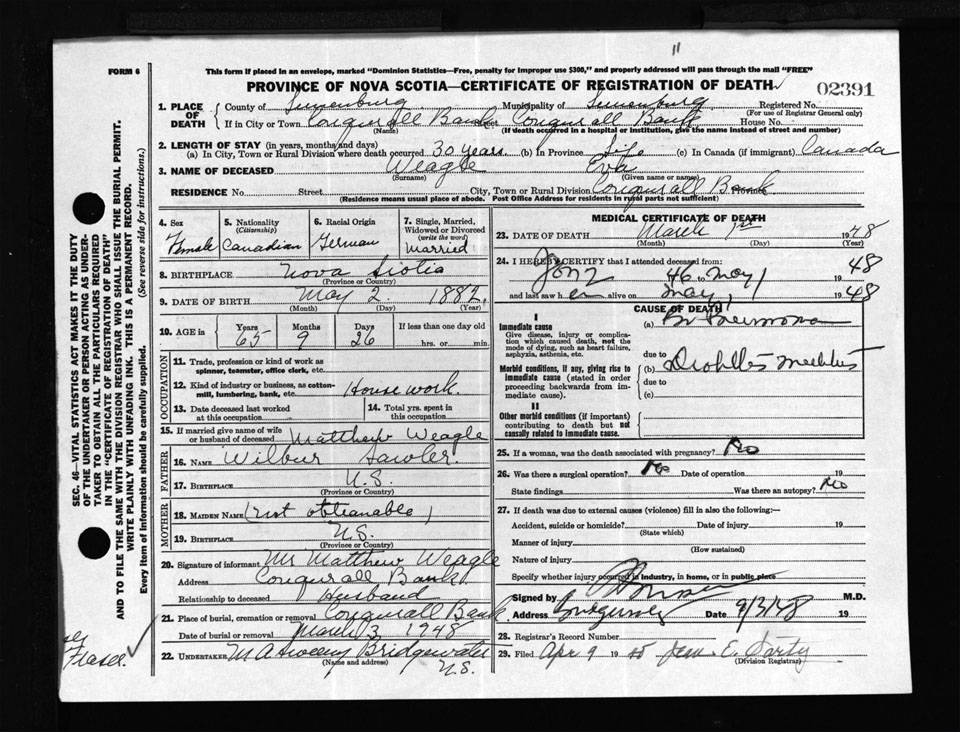 11
FORM 6
This form if placed in an envelope, marked "Dominion Statistics—Free, penalty for improper use $300," and properly addressed will pass through the mail "FREE"
PROVINCE OF NOVA SCOTIA—CERTIFICATE OF REGISTRATION OF DEATH
02391
1. PLACE OF DEATH
County of Lunenburg Municipality of Lunenburg Registered No.
(For use of Registrar General only)
If in City or Town Conqurall Bank Street Conqurall Bank House No.
(Name) (If death occurred in a hospital or institution, give the name instead of street and number)
2. LENGTH OF STAY (in years, months and days)
(a) In City, Town or Rural Division where death occurred 30 years. (b) In Province Life (c) In Canada (if immigrant) Canada
3. NAME OF DECEASED Weagle Eva
(Surname) (Given name or names)
RESIDENCE No. Street City, Town or Rural Division Conqurall Bank
(Residence means usual place of abode. Post Office Address for residents in rural parts not sufficient)
4. Sex Female
5. Nationality (Citizenship) Canadian
6. Racial Origin German
7. Single, Married, Widowed or Divorced (write the word) Married
8. BIRTHPLACE Nova Scotia
(Province or Country)
9. DATE OF BIRTH May 2. 1882.
(Month) (Day) (Year)
10. AGE in Years 65 Months 9 Days 26 If less than one day old hrs. or min.
OCCUPATION
11. Trade, profession or kind of work as spinner, teamster, office clerk, etc.
12. Kind of industry or business, as cotton-mill, lumbering, bank, etc. House work.
13. Date deceased last worked at this occupation
14. Total yrs. spent in this occupation
15. If married give name of wife or husband of deceased Matthew Weagle
FATHER
16. NAME Wilbur Sawler.
17. BIRTHPLACE N.S.
(Province or Country)
MOTHER
18. MAIDEN NAME (not obtianable)
19. BIRTHPLACE N.S.
(Province or Country)
20. Signature of informant Mr Matthew Weagle
Address Conqurall Bank
Relationship to deceased Husband
21. Place of burial, cremation or removal Conqurall Bank
Date of burial or removal March 3 1948
22. UNDERTAKER M A Sweeny Bridgewater
(Name and address) N.S.
MEDICAL CERTIFICATE OF DEATH
23. DATE OF DEATH March 1st 1948
(Month) (Day) (Year)
24. I HEREBY CERTIFY that I attended deceased from:
46 to May 1 48
and last saw h er alive on May 1 1948
CAUSE OF DEATH
I
Immediate cause
Give disease, injury or complication which caused death, not the mode of dying, such as heart failure, asphyxia, asthenia, etc.
(a) Br Pneumona
due to
Morbid conditions, if any, giving rise to immediate cause (stated in order proceeding backwards from immediate cause).
(b)
due to
(c)
II
Other morbid conditions (if important) contributing to death but not causally related to immediate cause.
25. If a woman, was the death associated with pregnancy? No
26. Was there a surgical operation? No Date of operation 19
State findings Was there an autopsy? No
27. If death was due to external causes (violence) fill in also the following:—
Accident, suicide or homicide? Date of injury 19
(State which)
Manner of injury
(How sustained)
Nature of injury
Specify whether injury occurred in industry, in home, or in public place
Signed by M.D.
Address Bridgewater Date 9/3/48 19
28. Registrar's Record Number
29. Filed Apr 9 19
(Division Registrar)
SEC. 46—VITAL STATISTICS ACT MAKES IT THE DUTY
OF THE UNDERTAKER OR PERSON ACTING AS UNDER-
TAKER TO OBTAIN ALL THE PARTICULARS REQUIRED
IN THE "CERTIFICATE OF REGISTRATION OF DEATH"
AND TO FILE THE SAME WITH THE DIVISION REGISTRAR WHO SHALL ISSUE THE BURIAL PERMIT.
WRITE PLAINLY WITH UNFADING INK. THIS IS A PERMANENT RECORD.
Every item of information should be carefully supplied. (See reverse side for instructions.)